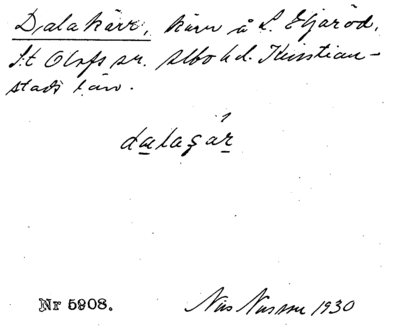 Dalakärr, kärr å L. Eljaröd,
St Olofs sn. Albo hd. Kristian-
stads län.
dalagár
Nr 5908.
Nils Nilsson 1930